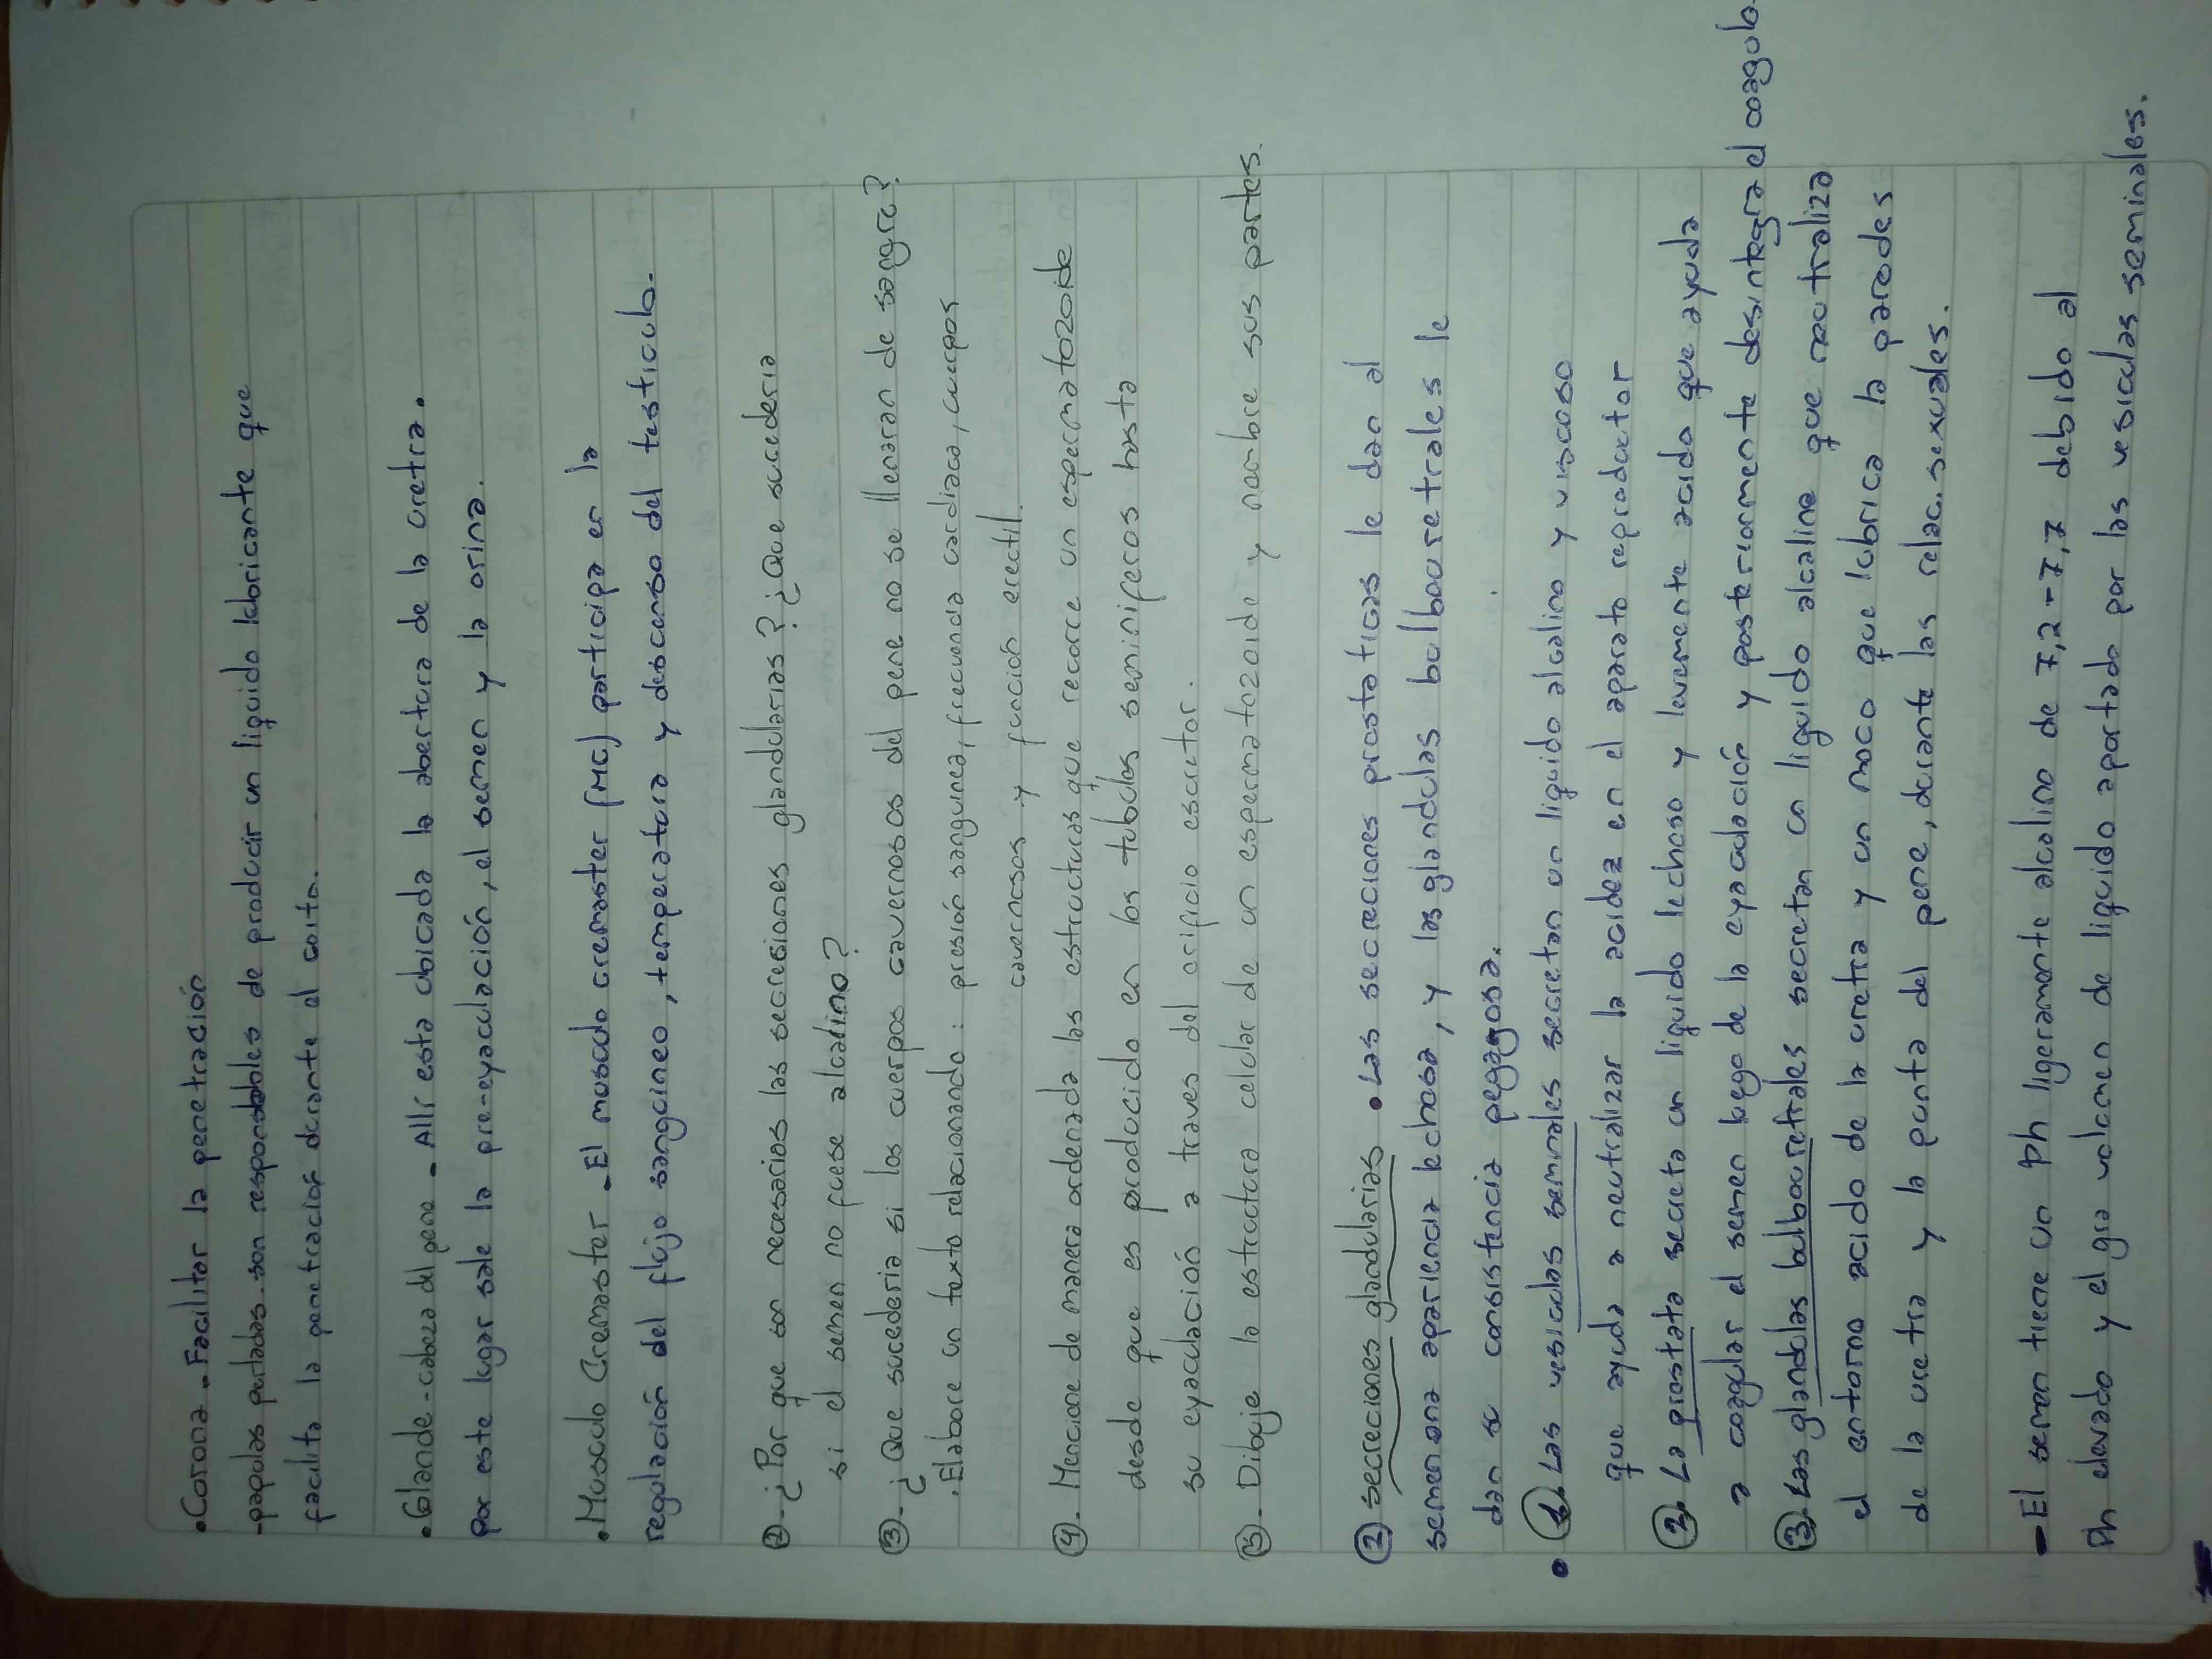 •Corona - Facilitar la penetración
-papulas perladas. son respondables de producir un liquido lubricante que
facilita la penetración durante el coito.
•Glande - cabeza del pene - Allí esta ubicada la abertura de la uretra.
Por este lugar sale la pre-eyaculación, el semen y la orina.
•Musculo Cremaster - El musculo cremaster (MC) participa en la
regulación del flujo sanguineo, temperatura y descenso del testiculo.
②- ¿Por que son necesarios las secresiones glandularias? ¿Que sucederia
si el semen no fuese alcalino?
③- ¿Que sucederia si los cuerpos cavernosos del pene no se llenaran de sangre?
. Elabore un texto relacionando: presión sanguinea, frecuencia cardiaca, cuerpos
cavernosos y función erectil.
④- Mencione de manera ordenada las estructuras que recorre un espermatozoide
desde que es producido en los tubulos seminiferos hasta
su eyaculación a traves del orificio escretor.
⑤- Dibuje la estructura celular de un espermatozoide y nombre sus partes.
② secreciones glandularias • Las secreciones prostaticas le dan al
semen una apariencia lechosa, y las glandulas bulbouretrales le
dan su consistencia pegagosa.
• ①. Las vesiculas seminales secretan un liquido alcalino y viscoso
que ayuda a neutralizar la acidez en el aparato reproductor
②. La prostata secreta un liquido lechoso y levemente acido que ayuda
a coagular el semen luego de la eyaculación y posteriormente desintegra el coagulo.
③. Las glandulas bulbouretrales secretan un liquido alcalino que neutraliza
el entorno acido de la uretra y un moco que lubrica la paredes
de la uretra y la punta del pene, durante las relac. sexuales.
- El semen tiene un Ph ligeramente alcalino de 7,2 - 7,7 debido al
Ph elevado y el gra volumen de liquido aportado por las vesiculas seminales.